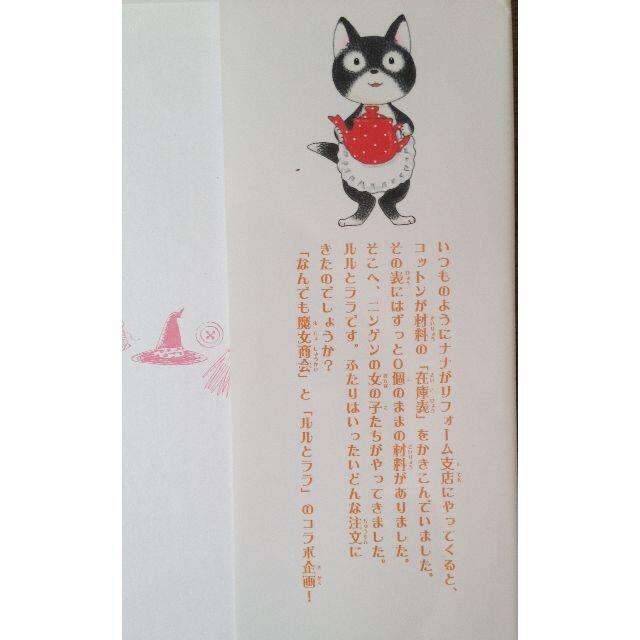 いつものようにナナがリフォーム支店にやってくると、
コットンが材料の「在庫表」をかきこんでいました。
その表にはずっと0個のままの材料がありました。
そこへ、ニンゲンの女の子たちがやってきました。
ルルとララです。ふたりはいったいどんな注文に
きたのでしょうか？
「なんでも魔女商会」と「ルルとララ」のコラボ企画！